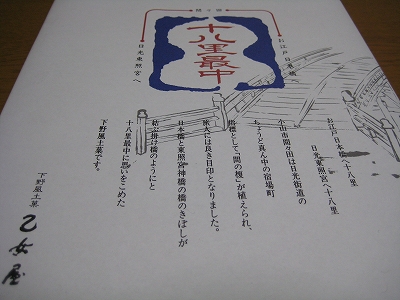 お江戸日本橋へ
十八里最中
日光東照宮へ
お江戸日本橋へ十八里
日光東照宮へ十八里
小山市間々田は日光街道の
ちょうど真ん中の宿場町
指標として「間の榎」が植えられ、
旅人には良き目印となりました。
日本橋と東照宮神橋の橋のきぼしが
結ぶ掛け橋のようにと
十八里最中に思いをこめた
下野風土菓です。
下野風土菓 乙女屋